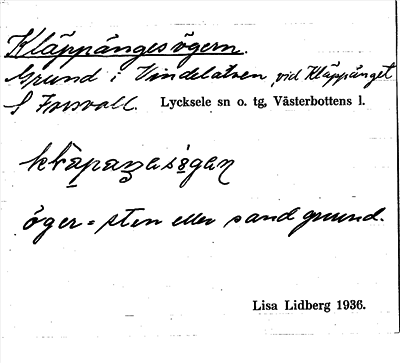 Kläppängesögern.
Grund i Vindelälven vid Kläppänget
S Forsvall. Lycksele sn o. tg, Västerbottens l.
öger = sten eller sand grund.
Lisa Lidberg 1936.